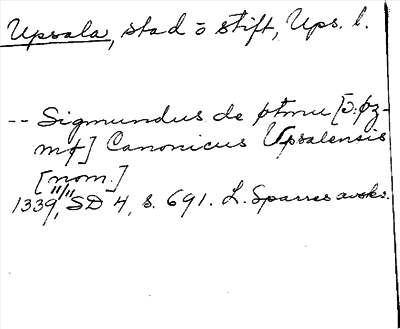 Upsala, stad o stift, Ups. l.
-- Sigmundus de
Canonicus Upsalensis
[nom.]
1339 11/11, SD 4, s. 691. L. Sparres avskr.